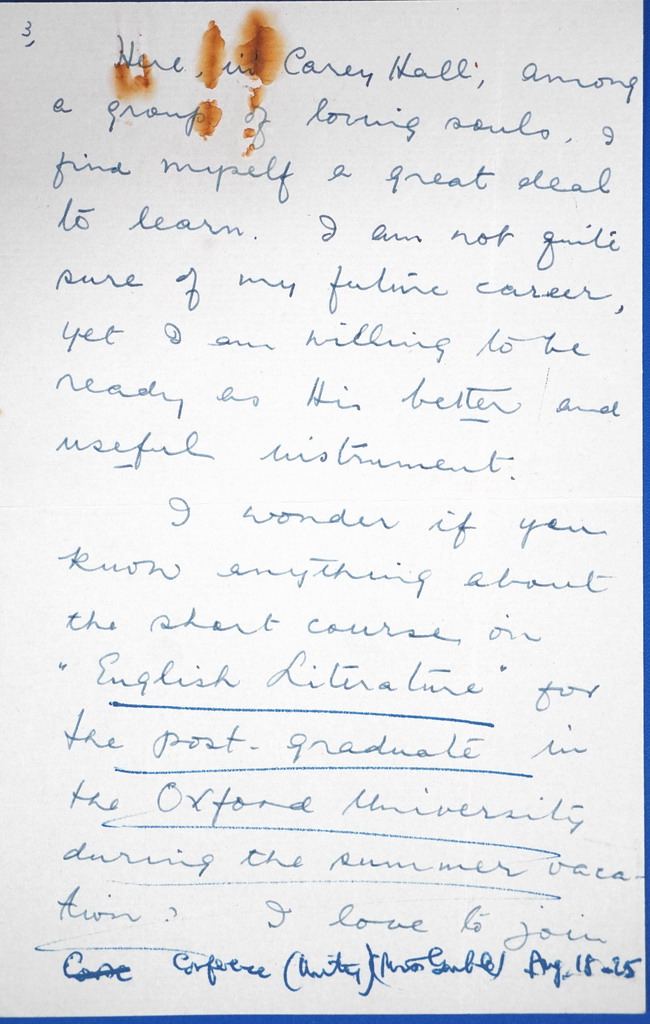 3,
Here, in Carey Hall, among
a group of loving souls, I
find myself a great deal
to learn. I am not quite
sure of my future career,
yet I am willing to be
ready as His better and
useful instrument.
I wonder if you
know anything about
the short course on
"English Literature" for
the post-graduate in
the Oxford University
during the summer vaca-
tion? I love to join
Conference (Unity) (Miss Gamble) Aug. 18-25